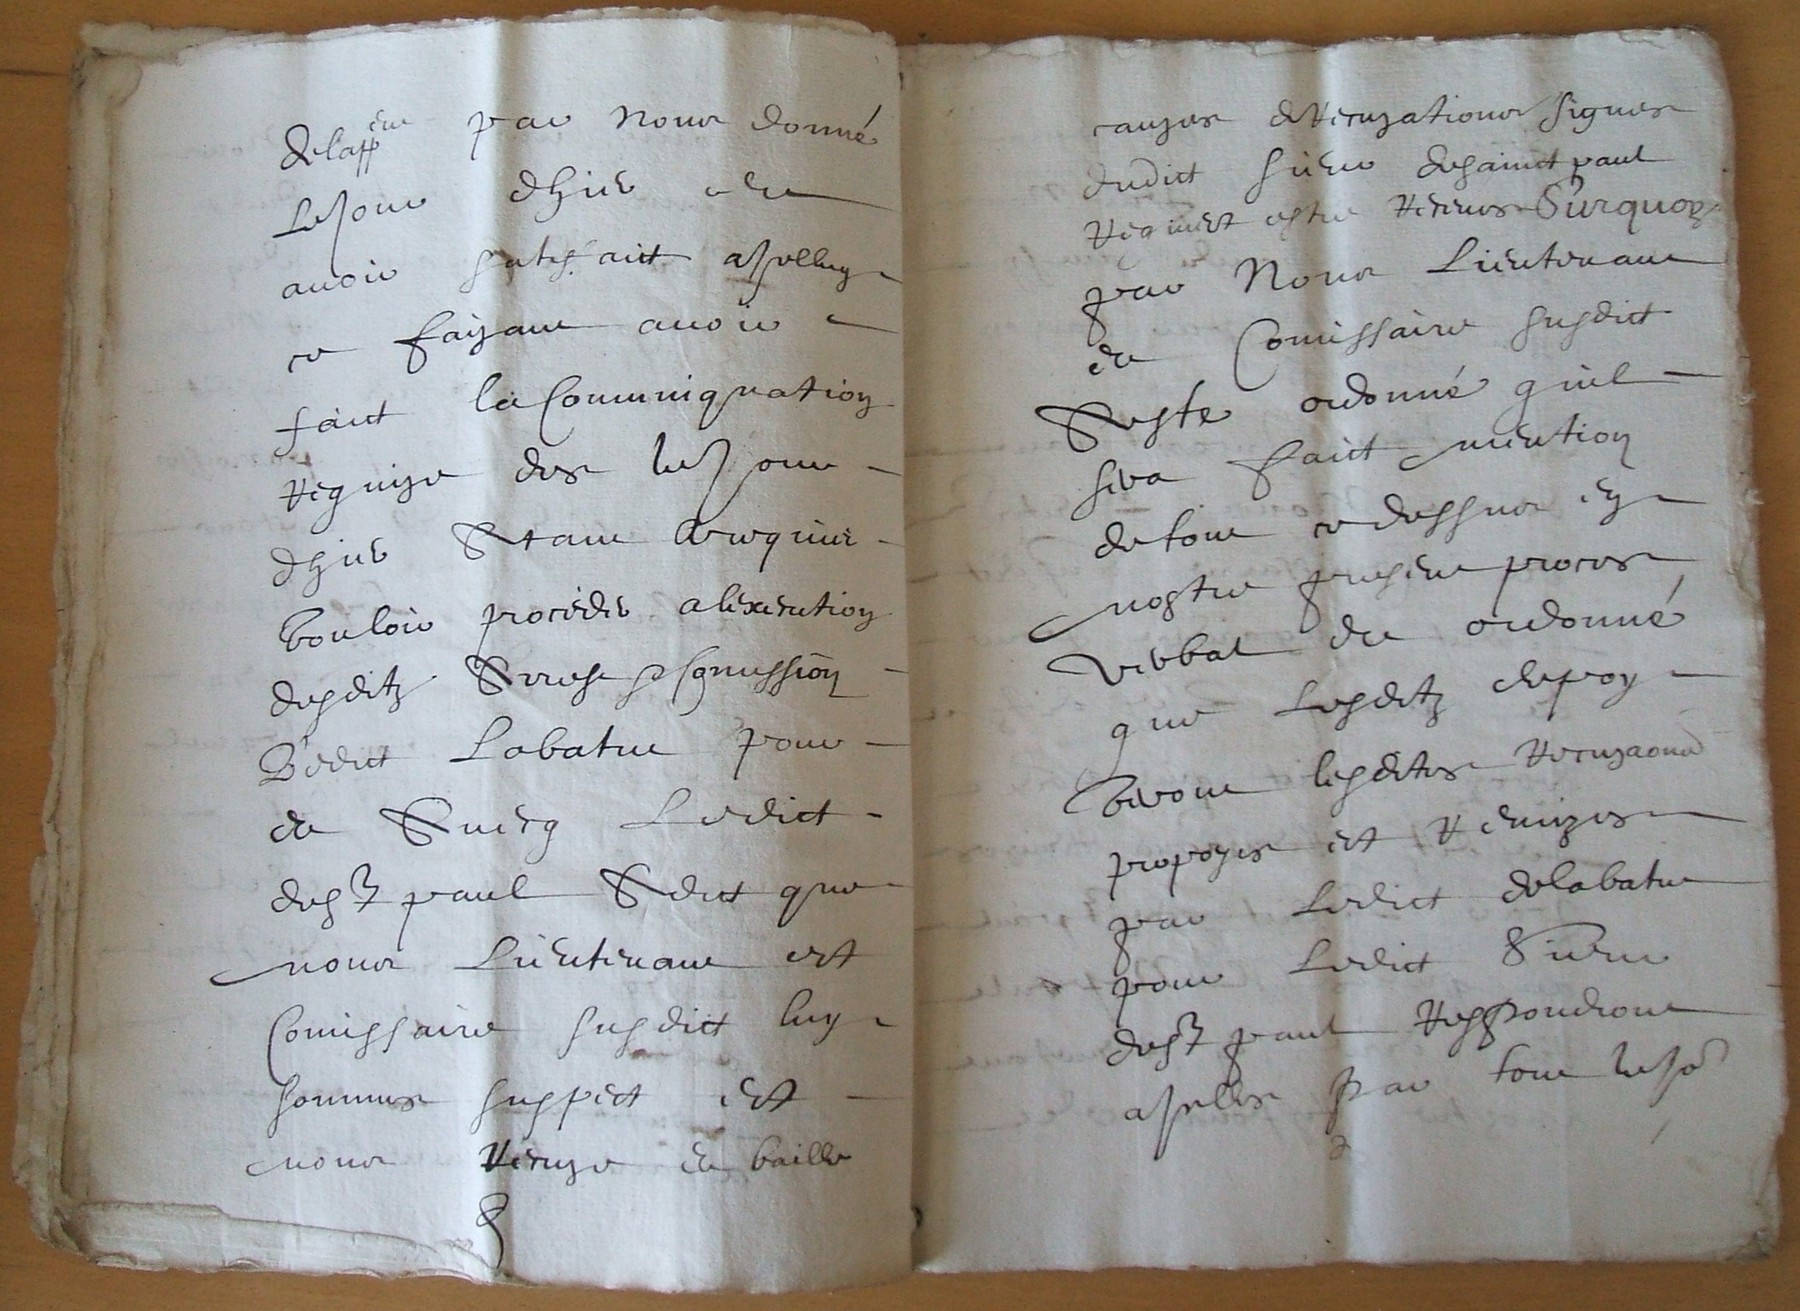 delapp par nous donné
Lejour dhier et
avoir satisfaict a celluy
ce faizant avoir
faict la Communiquation
requize des le jour
dhier Et au
Vouloir proceder alexecution
desditz Commission
Ledict Labatut pour
et Ledict
de St paul A dict que
nous Lieutenant et
Comissaire susdict luy
sommes suspect et
nous recuze et baille
cauzes de recuzations signes
dudict sieur de sainct paul
requiert estre receues Surquoy
par Nous Lieutenant
et Comissaire susdict
Auste ordonné quil
sera faict mention
de tout ce dessus en
nostre present proces
verbal et ordonné
que Lesditz
lesdites recuzaons
propozes et remizes
par Ledict de Labatut
pour Ledict Sieur
de St paul respondront
a par tout le jor